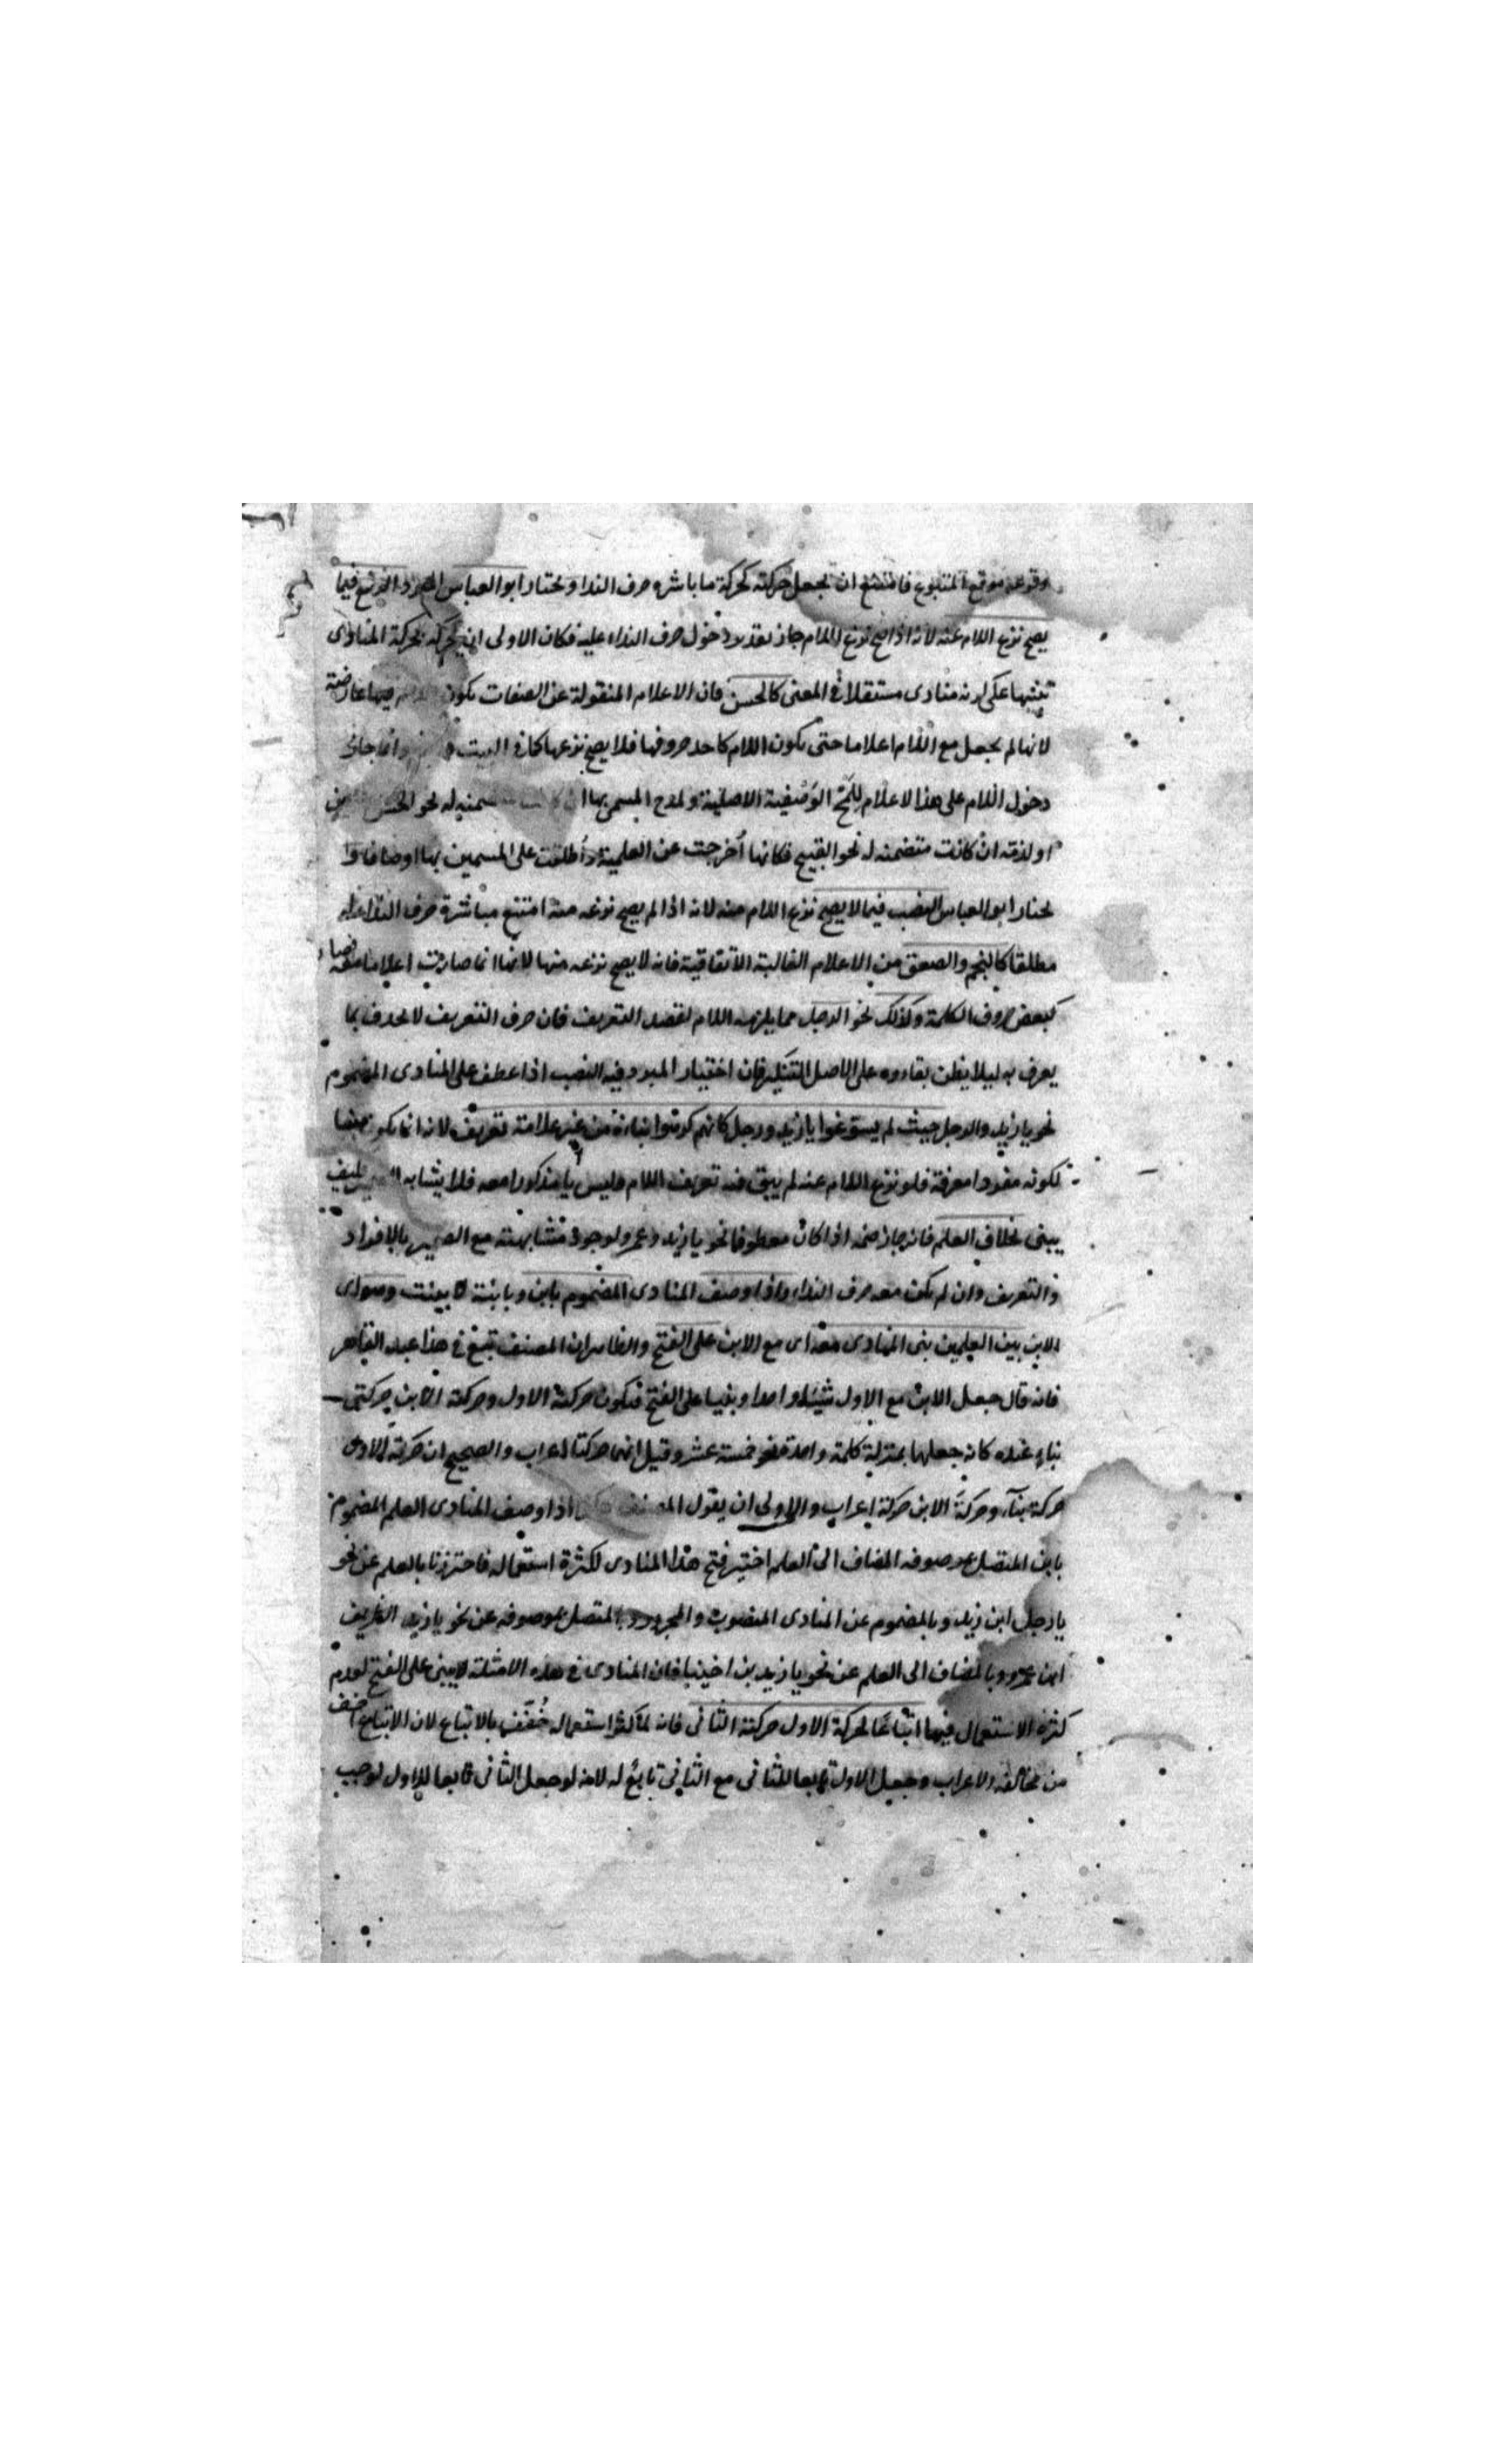 وقوعه موقع المتبوع فامتنع ان يجعل حركته كحركة ما باشره حرف النداء ويختار ابو العباس المبرد الرفع فيما
يصح نزع اللام عنه لانه اذا صح نزع اللام جاز تقدير دخول حرف النداء عليه فكان الاولى ان يحركه بحركة المنادى
تنبيها على انه منادى مستقلا في المعنى كالحسن فان الاعلام المنقولة عن الصفات يكون فيها عارضة
لانها لم يجعل مع اللام اعلاما حتى يكون اللام كاحد حروفها فلا يصح نزعها كما في البيت وانما جاز
دخول اللام على هذا الاعلام للمح الوصفية الاصلية ولمدح المسمى بها ان كانت متضمنه له نحو الحسن
او لذمه ان كانت متضمنه له نحو القبيح فكانها أخرجت عن العلمية وأطلقت على المسمين بها اوصافا و
يختار ابو العباس النصب فيما لا يصح نزع اللام عنه لانه اذا لم يصح نزعه عنه امتنع مباشرة حرف النداء له
مطلقا كالنجم والصعق من الاعلام الغالبة الاتفاقية فانه لا يصح نزعه منها لانها انما صارت اعلاما معه فصار
كبعض حروف الكلمة وكذلك نحو الرجل مما يلزمه اللام لقصد التعريف فان حرف التعريف لا يحذف مما
يعرف به ليلا يظن بقاءوه على الاصل التنكير فان اختيار المبرد فيه النصب اذا عطف على المنادى المضموم
نحو يا زيد والرجل حيث لم يسوغوا يا زيد ورجل كانهم كرهوا بناءه من غير علامة تعريف لانه انما يكون
لكونه مفردا معرفة فلو نزع اللام عنه لم يبق فيه تعريف اللام وليس يا مذكورا معه فلا يشابه الضمير فكيف
يبنى بخلاف العلم فانه جاز ضمه اذا كان معطوفا نحو يا زيد وعمرو لوجود مشابهته مع الضمير بالافراد
والتعريف وان لم يكن معه حرف النداء واذا وصف المنادى المضموم بابن وبابنة لا ببنت وهو اى
الابن بين العلمين بنى المنادى معه اى مع الابن على الفتح والظاهر ان المصنف تبع في هذا عبد القاهر
فانه قال جعل الابن مع الاول شيئا واحدا وبنيا على الفتح فتكون حركة الاول وحركة الابن حركتى
بناء عنده كانه جعلها بمنزلة كلمة واحدة نحو خمسة عشر وقيل انهما حركتا اعراب والصحيح ان حركة الاول
حركة بناء وحركة الابن حركة اعراب والاولى ان يقول المصنف اذا وصف المنادى العلم المضموم
بابن المتصل بموصوفه المضاف الى العلم اختير فتح هذا المنادى لكثرة استعماله فاحترزنا بالعلم عن نحو
يا رجل ابن زيد وبالمضموم عن المنادى المنصوب والمجرور وبالمتصل بموصوفه عن نحو يا زيد الظريف
ابن عمرو وبالمضاف الى العلم عن نحو يا زيد بن اخينا فان المنادى في هذه الامثلة لا يبنى على الفتح لعدم
كثرة الاستعمال فيها اتباعا لحركة الاول حركة الثانى فانه لما كثر استعماله خفف بالاتباع لان الاتباع اخف
من مخالفة الاعراب وجعل الاول تابعا للثانى مع الثانى تابع له لانه لو جعل الثانى تابعا للاول لوجب